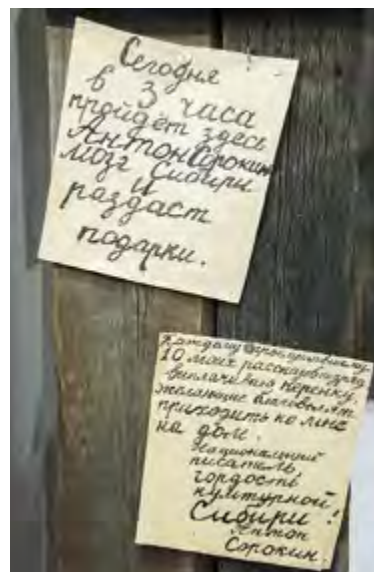 Сегодня
в 3 часа
пройдёт здесь
Антон Сорокин
мозг Сибири
и
раздаст
подарки.
Каждому прослушавшему
10 моих рассказов подряд
выплачиваю керенку,
желающие благоволят
приходить ко мне
на дом.
Национальный
писатель,
гордость
культурной
Сибири!
Антон
Сорокин.